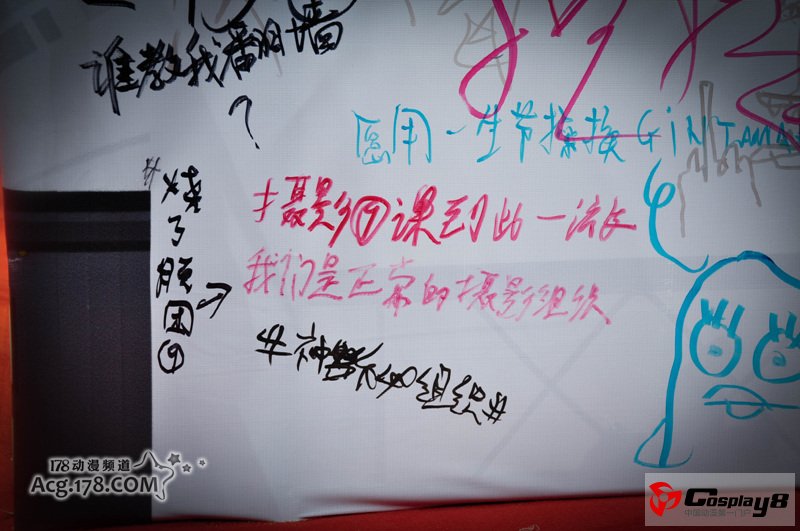 谁教我翻墙
?
愿用一生节操换GiNTAMA
摄影⑨课到此一游
我们是正常的摄影组织
烧了顾团⑨
#神秘组织#
178动漫频道
Acg.178.COM
Cosplay8
中国动漫第一门户